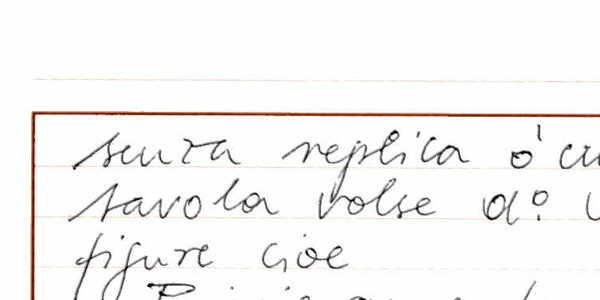 senza replica ó
tavola volse d.º
figure cioe